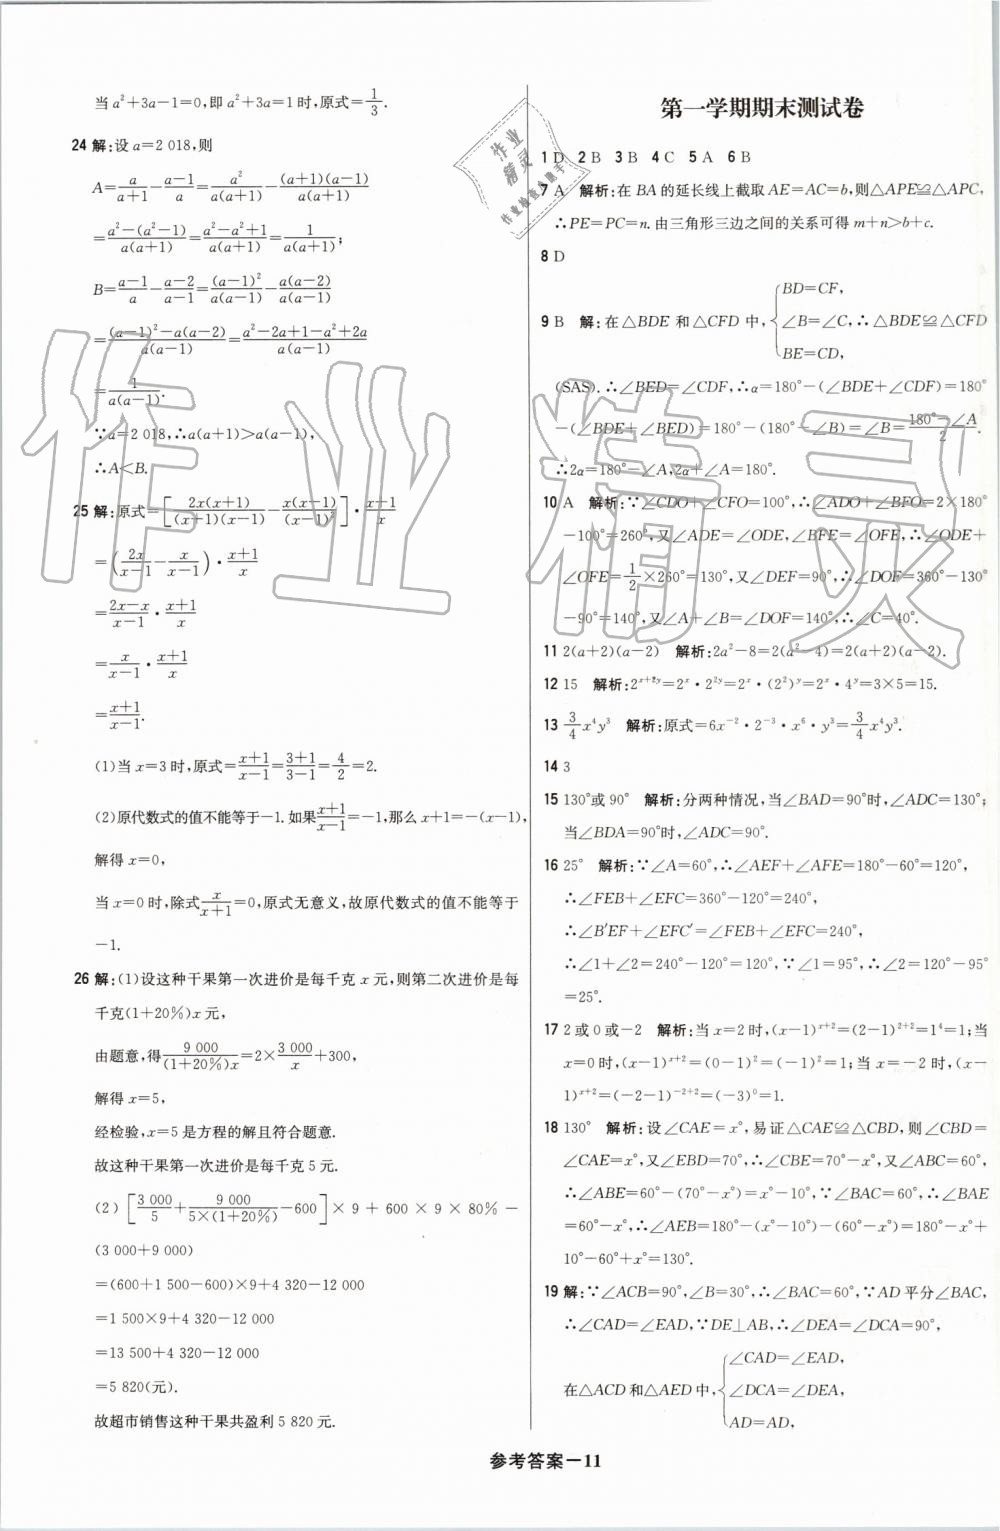 当a²+3a-1=0,即a²+3a=1时,原式=1/3.
24 解:设a=2 018,则
A=a/(a+1)-(a-1)/a=a²/(a(a+1))-(a+1)(a-1)/(a(a+1))
=(a²-(a²-1))/(a(a+1))=(a²-a²+1)/(a(a+1))=1/(a(a+1));
B=(a-1)/a-(a-2)/(a-1)=(a-1)²/(a(a-1))-a(a-2)/(a(a-1))
=((a-1)²-a(a-2))/(a(a-1))=(a²-2a+1-a²+2a)/(a(a-1))
=1/(a(a-1)).
∵a=2 018,∴a(a+1)>a(a-1),
∴A<B.
25 解:原式=[2x(x+1)/((x+1)(x-1))-x(x-1)/(x-1)²]·(x+1)/x
=(2x/(x-1)-x/(x-1))·(x+1)/x
=(2x-x)/(x-1)·(x+1)/x
=x/(x-1)·(x+1)/x
=(x+1)/(x-1).
(1)当x=3时,原式=(x+1)/(x-1)=(3+1)/(3-1)=4/2=2.
(2)原代数式的值不能等于-1.如果(x+1)/(x-1)=-1,那么x+1=-(x-1),
解得x=0,
当x=0时,除式x/(x+1)=0,原式无意义,故原代数式的值不能等于
-1.
26 解:(1)设这种干果第一次进价是每千克x元,则第二次进价是每
千克(1+20%)x元,
由题意,得9 000/((1+20%)x)=2×3 000/x+300,
解得x=5,
经检验,x=5是方程的解且符合题意.
故这种干果第一次进价是每千克5元.
(2)[3 000/5+9 000/(5×(1+20%))-600]×9+600×9×80%-
(3 000+9 000)
=(600+1 500-600)×9+4 320-12 000
=1 500×9+4 320-12 000
=13 500+4 320-12 000
=5 820(元).
故超市销售这种干果共盈利5 820元.
第一学期期末测试卷
1 D 2 B 3 B 4 C 5 A 6 B
7 A 解析:在BA的延长线上截取AE=AC=b,则△APE≌△APC,
∴PE=PC=n.由三角形三边之间的关系可得m+n>b+c.
8 D
BD=CF,
9 B 解:在△BDE和△CFD中,{∠B=∠C,∴△BDE≌△CFD
BE=CD,
(SAS).∴∠BED=∠CDF,∴α=180°-(∠BDE+∠CDF)=180°
-(∠BDE+∠BED)=180°-(180°-∠B)=∠B=(180°-∠A)/2.
∴2α=180°-∠A,2α+∠A=180°.
10 A 解析:∵∠CDO+∠CFO=100°,∴∠ADO+∠BFO=2×180°
-100°=260°,又∠ADE=∠ODE,∠BFE=∠OFE,∴∠ODE+
∠OFE=1/2×260°=130°,又∠DEF=90°,∴∠DOF=360°-130°
-90°=140°,又∠A+∠B=∠DOF=140°,∴∠C=40°.
11 2(a+2)(a-2) 解析:2a²-8=2(a²-4)=2(a+2)(a-2).
12 15 解析:2ˣ⁺²ʸ=2ˣ·2²ʸ=2ˣ·(2²)ʸ=2ˣ·4ʸ=3×5=15.
13 3/4x⁴y³ 解析:原式=6x⁻²·2⁻³·x⁶·y³=3/4x⁴y³.
14 3
15 130°或90° 解析:分两种情况,当∠BAD=90°时,∠ADC=130°;
当∠BDA=90°时,∠ADC=90°.
16 25° 解析:∵∠A=60°,∴∠AEF+∠AFE=180°-60°=120°,
∴∠FEB+∠EFC=360°-120°=240°,
∴∠B′EF+∠EFC′=∠FEB+∠EFC=240°,
∴∠1+∠2=240°-120°=120°,∵∠1=95°,∴∠2=120°-95°
=25°.
17 2或0或-2 解析:当x=2时,(x-1)ˣ⁺²=(2-1)²⁺²=1⁴=1;当
x=0时,(x-1)ˣ⁺²=(0-1)²=(-1)²=1;当x=-2时,(x-
1)ˣ⁺²=(-2-1)⁻²⁺²=(-3)⁰=1.
18 130° 解析:设∠CAE=x°,易证△CAE≌△CBD,则∠CBD=
∠CAE=x°,又∠EBD=70°,∴∠CBE=70°-x°,又∠ABC=60°,
∴∠ABE=60°-(70°-x°)=x°-10°,∵∠BAC=60°,∴∠BAE
=60°-x°,∴∠AEB=180°-(x°-10°)-(60°-x°)=180°-x°+
10°-60°+x°=130°.
19 解:∵∠ACB=90°,∠B=30°,∴∠BAC=60°,∵AD平分∠BAC,
∴∠CAD=∠EAD,∵DE⊥AB,∴∠DEA=∠DCA=90°,
∠CAD=∠EAD,
在△ACD和△AED中,{∠DCA=∠DEA,
AD=AD,
参考答案-11
作业精灵
作业精灵
作业检查小助手